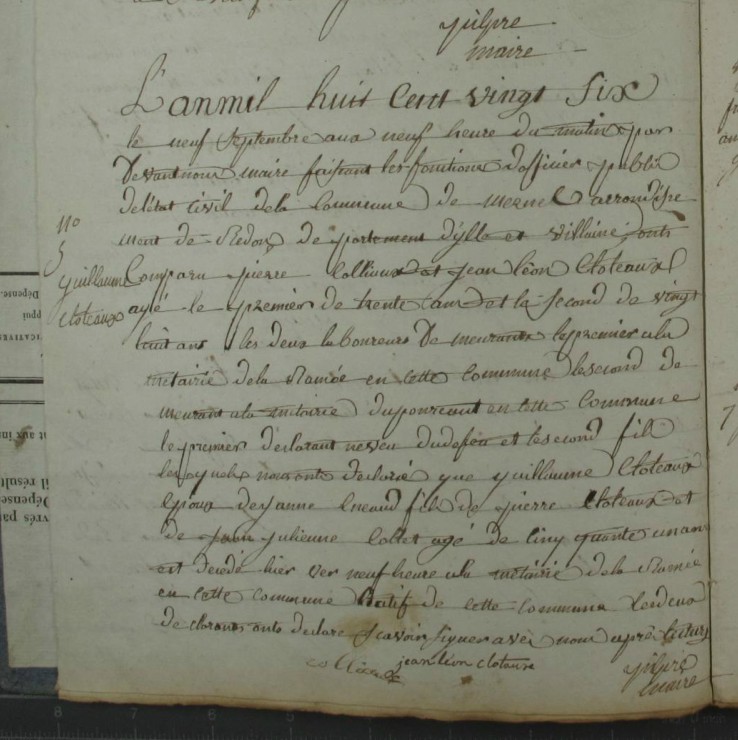 maire
L'anmil huit Cent vingt six
le neuf Septembre aux neuf heure du matin par
Devant nous maire faisant les fonctions d'officier publi
de létat Civil dela Commune de mernel arrondisse
ment de Redon de partement d'ylle et villaine onts
No
5
Guillaume
Cloteaux
Comparu pierre Collieux et jean léon Cloteaux
agé le premier de trente ans et la second de vingt
huit ans les deux laboureurs De meurants le premier ala
métairie dela Ramée en cette Commune lesecond de
meurant ala métairie en cette Commune
le premier déclarant neveu dudefeu et lesecond fils
lesquels nous onts declaré que guillaume Cloteaux
Epoux de janne fils de pierre Cloteaux et
de julienne Collet agé de cinquante un ans
est decedé hier ver neuf heure ala métairie dela Ramée
en cette commune Natif de cette Commune les deux
declarants onts declare scavoir signer avec nous apré lecture
collieux
jean léon cloteaux
maire